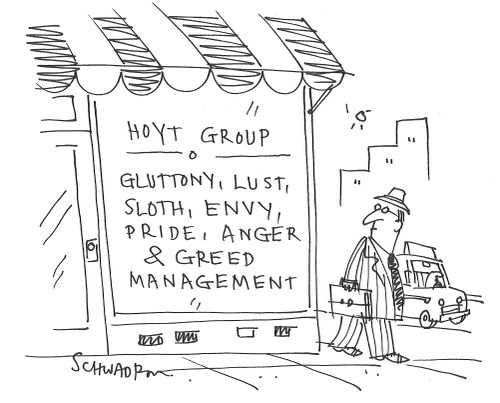 HOYT GROUP
GLUTTONY, LUST,
SLOTH, ENVY,
PRIDE, ANGER
& GREED
MANAGEMENT
SCHWADRON